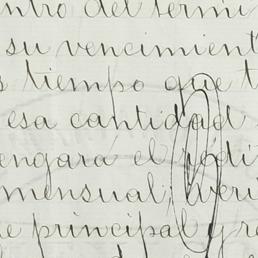 ntro del termi
su vencimient
s tiempo que t
esa cantidad
engara el rédi
mensual, veri
e principal y re